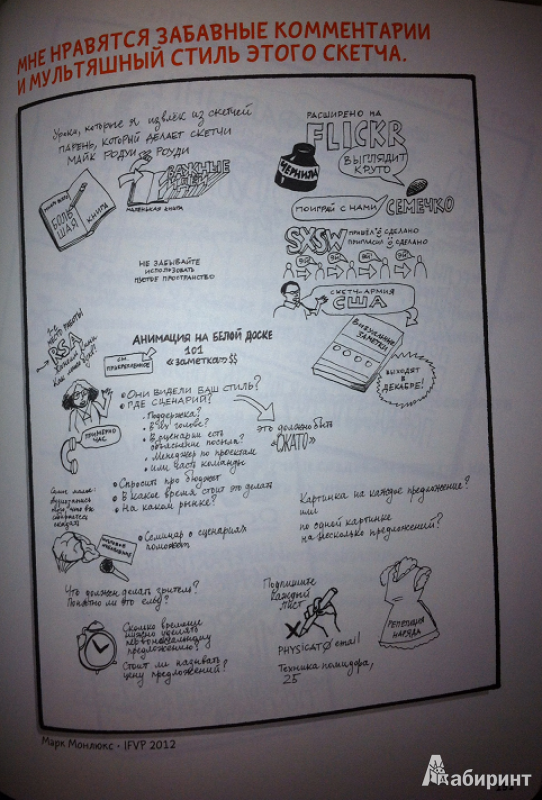 МНЕ НРАВЯТСЯ ЗАБАВНЫЕ КОММЕНТАРИИ
И МУЛЬТЯШНЫЙ СТИЛЬ ЭТОГО СКЕТЧА.
Уроки, которые я извлёк из скетчей
ПАРЕНЬ, КОТОРЫЙ ДЕЛАЕТ СКЕТЧИ
МАЙК РОУДИ РОУДИ
БОЛЬ-
ШАЯ КНИГА
ВАЖНЫЕ
МАЛЕНЬКАЯ КНИГА
НЕ ЗАБЫВАЙТЕ
ИСПОЛЬЗОВАТЬ
ПУСТОЕ ПРОСТРАНСТВО
РАСШИРЕНО НА
FLICKR
ВЫГЛЯДИТ
КРУТО
ЧЕРНИЛА
ПОИГРАЙ С НАМИ
СЕМЕЧКО
SXSW
ПРИШЁЛ СДЕЛАНО
ПРИГЛАСИЛ СДЕЛАНО
ЭЙ! ЭЙ! ЭЙ! ЭЙ!
СКЕТЧ-АРМИЯ
США
ВИЗУАЛЬНЫЕ
ЗАМЕТКИ
ВЫХОДЯТ
В
ДЕКАБРЕ!
МЕСТО РАБОТЫ
RSA
АНИМАЦИЯ НА БЕЛОЙ ДОСКЕ
101
«заметка» $$
СМ.
ПРИКРЕПЛЁННОЕ
ПРИМЕРНО
ЧАС
• ОНИ ВИДЕЛИ ВАШ СТИЛЬ?
• ГДЕ СЦЕНАРИЙ?
• Поддержка?
• В их голове?
• В сценарии есть
объяснение посыла?
• Менеджер по проектам
• или часть команды
ЭТО ДОЛЖНО БЫТЬ
«СЖАТО»
• Спросить про бюджет
• В какое время стоит это делать
• На каком рынке?
• Семинар о сценариях
поможет
Картинка на каждое предложение?
или
по одной картинке
на несколько предложений?
Что должен делать зритель?
Понятно ли это ему?
Сколько времени
нужно уделять
первоначальному
предложению?
Стоит ли называть
цену предложений?
Подпишите
каждый
лист
PHYSICAT/email
Техника помидора,
25
РЕПЕТИЦИЯ
НАРЯДА
Марк Монлюкс • IFVP 2012
Лабиринт